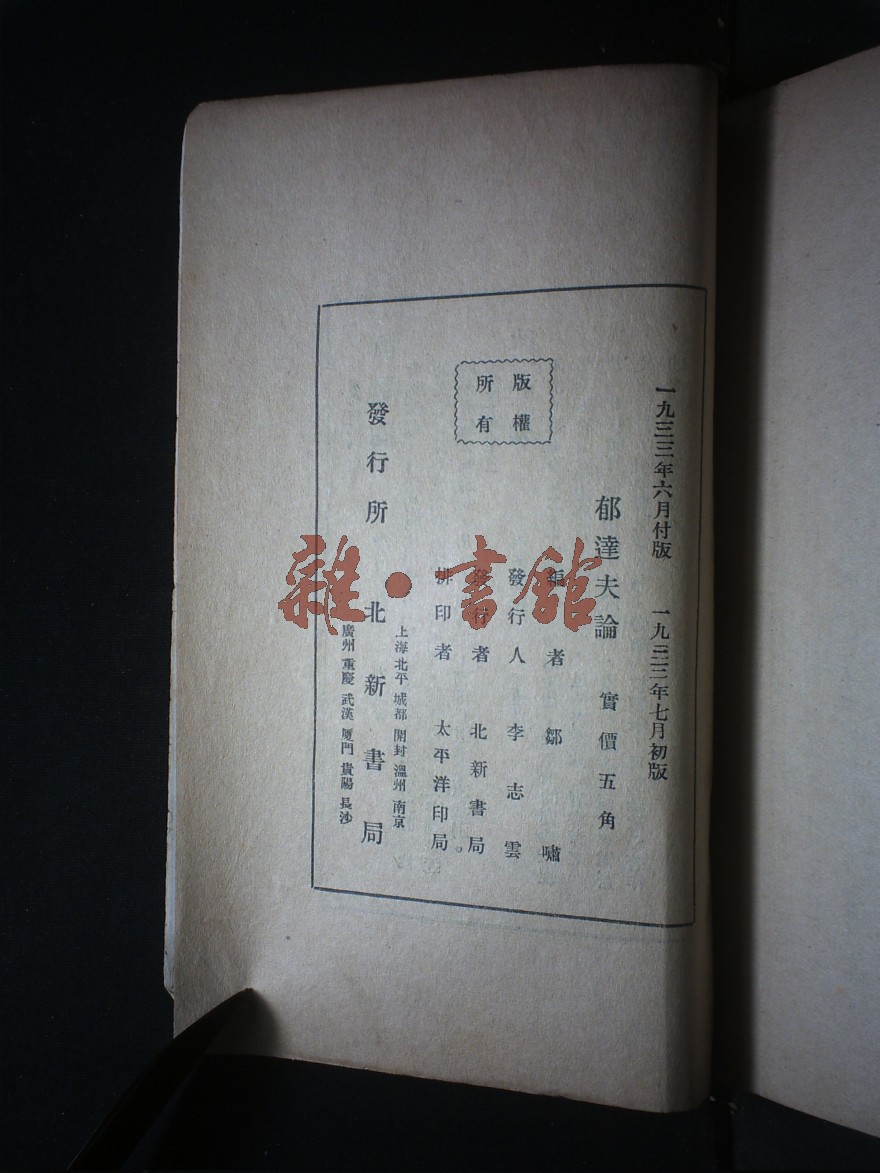 一九三三年六月付版 一九三三年七月初版
郁達夫論 實價五角
編者 鄒嘯
版權
所有
發行人 李志雲
發行者 北新書局
排印者 太平洋印局
上海 北平 城都 開封 溫州 南京
發行所 北新書局
廣州 重慶 武漢 厦門 貴陽 長沙
雜·書館